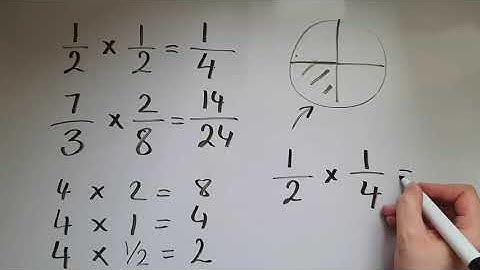 1/2 × 1/2 = 1/4
7/3 × 2/8 = 14/24
4 × 2 = 8
4 × 1 = 4
4 × 1/2 = 2
1/2 × 1/4 =